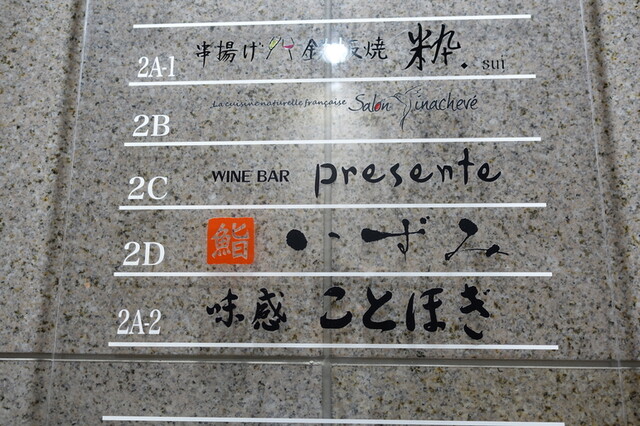 2A-1 串揚げ 鉄板焼 粋. sui
2B La cuisine naturelle française Salon Inachevé
2C WINE BAR presente
2D 鮨 いずみ
2A-2 味感 ことほぎ